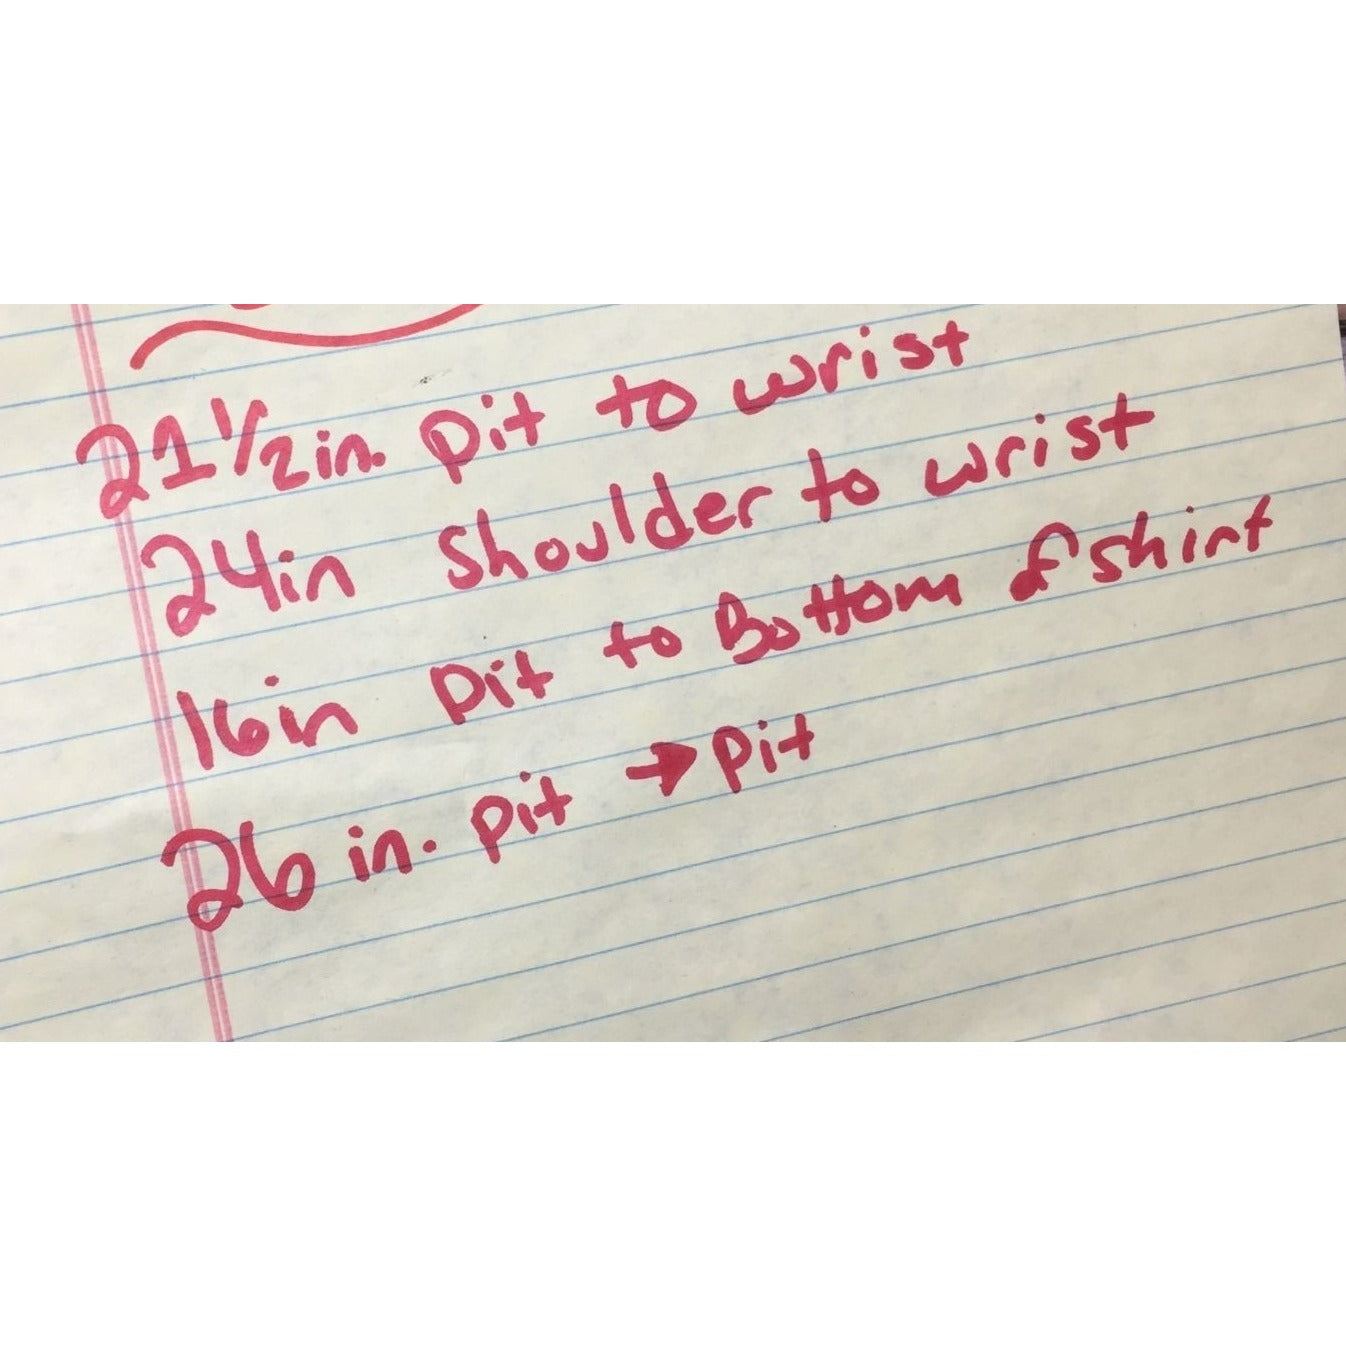 21 1/2 in. pit to wrist
24in shoulder to wrist
16in pit to Bottom of shirt
26 in. pit → pit